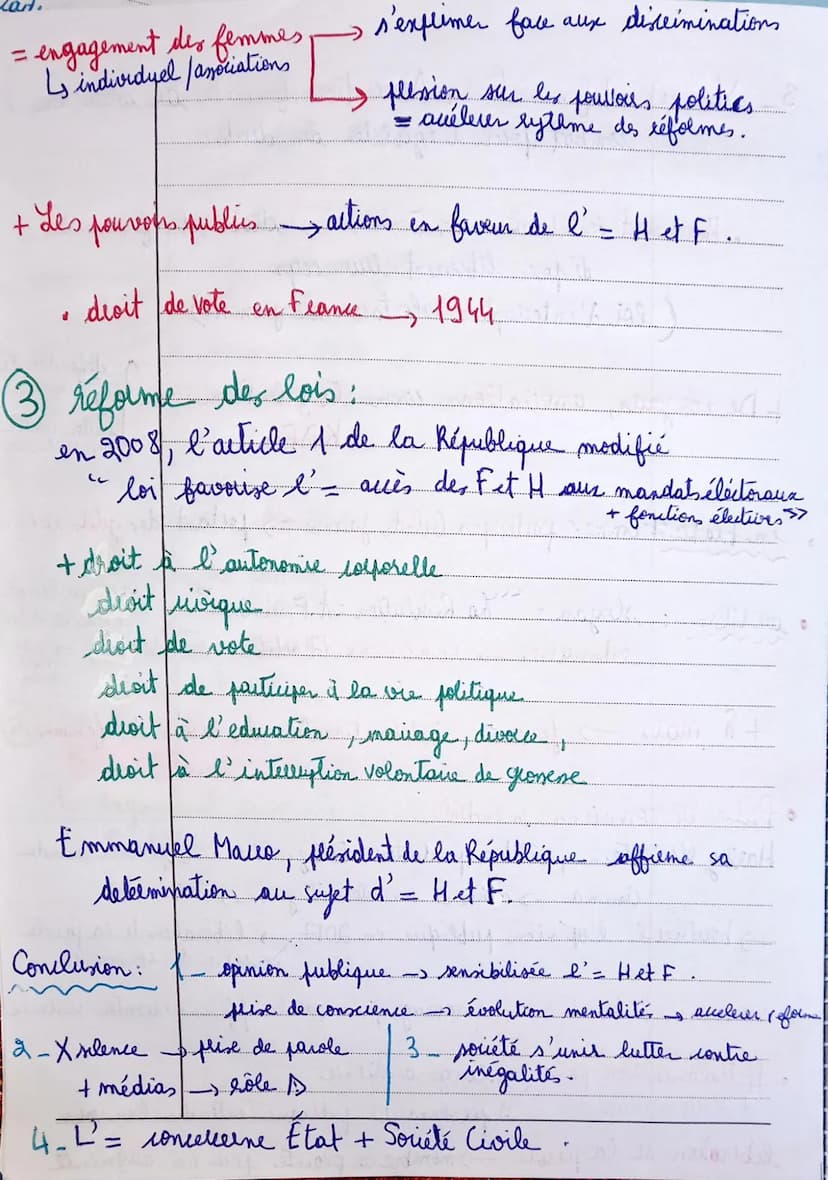 = engagement des femmes → s'exprimer face aux discriminations
↳ individuel / associations
→ pression sur les pouvoirs politics
= accélerer sytème des réformes.
+ Les pouvoirs publics → actions en faveur de l'= H et F.
• droit de vote en France → 1944
③ réforme des lois :
en 2008, l'article 1 de la République modifié
" loi favorise l'= accès des F et H aux mandats éléctoraux
+ fonctions électives >>
+ droit à l'autonomie corporelle
droit civique
droit de vote
droit de participer à la vie politique
droit à l'education, mariage, divorce,
droit à l'interruption volontaire de grossese
Emmanuel Macro, président de la République affirme sa
determination au sujet d'= H et F.
Conclusion : 1_ opinion publique → sensibilisée l'= H et F.
prise de conscience → évolution mentalités → accelerer reforme
2 _ X silence → prise de parole
+ médias → rôle
3 _ société s'unir lutter contre
inégalités.
4 _ L'= conccerne État + Société Civile.